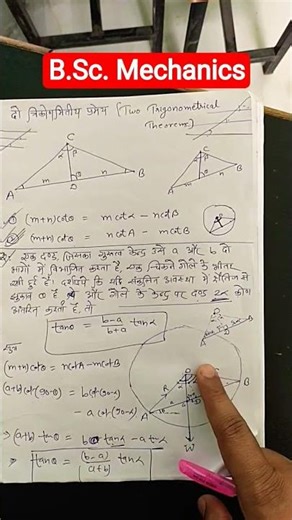 B.Sc. Mechanics
दो त्रिकोणमितीय प्रमेय (Two Trigonometrical Theorem)
C
α β
θ
A m D n B
C
α β
θ
A m n B
① (m+n)cotθ = m cotα − n cotβ
② (m+n)cotθ = n cotA − m cotB
एक दण्ड, जिसका गुरुत्व केन्द्र उसे a और b दो
भागों में विभाजित करता है, एक चिकने गोले के भीतर
रखी हुई है। दर्शाइये कि यदि संतुलित अवस्था में क्षैतिज से
झुकाव θ है और गोले के केन्द्र पर दण्ड 2α कोण
अंतरित करती है, तो
tanθ = (b−a)/(b+a) tanα
(m+n)cotθ = n cotA − m cotB
(a+b)cot(90−θ) = b cot(90−α)
− a cot(90−α)
⇒ (a+b) tanθ = b tanα − a tanα
⇒ tanθ = (b−a)/(a+b) tanα
R
A
B
W